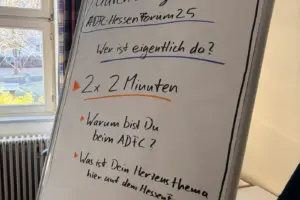 ADFC-HessenForum25
Wer ist eigentlich da?
2x 2 Minuten
Warum bist Du
beim ADFC?
Was ist Dein Herzensthema
hier auf dem HessenF